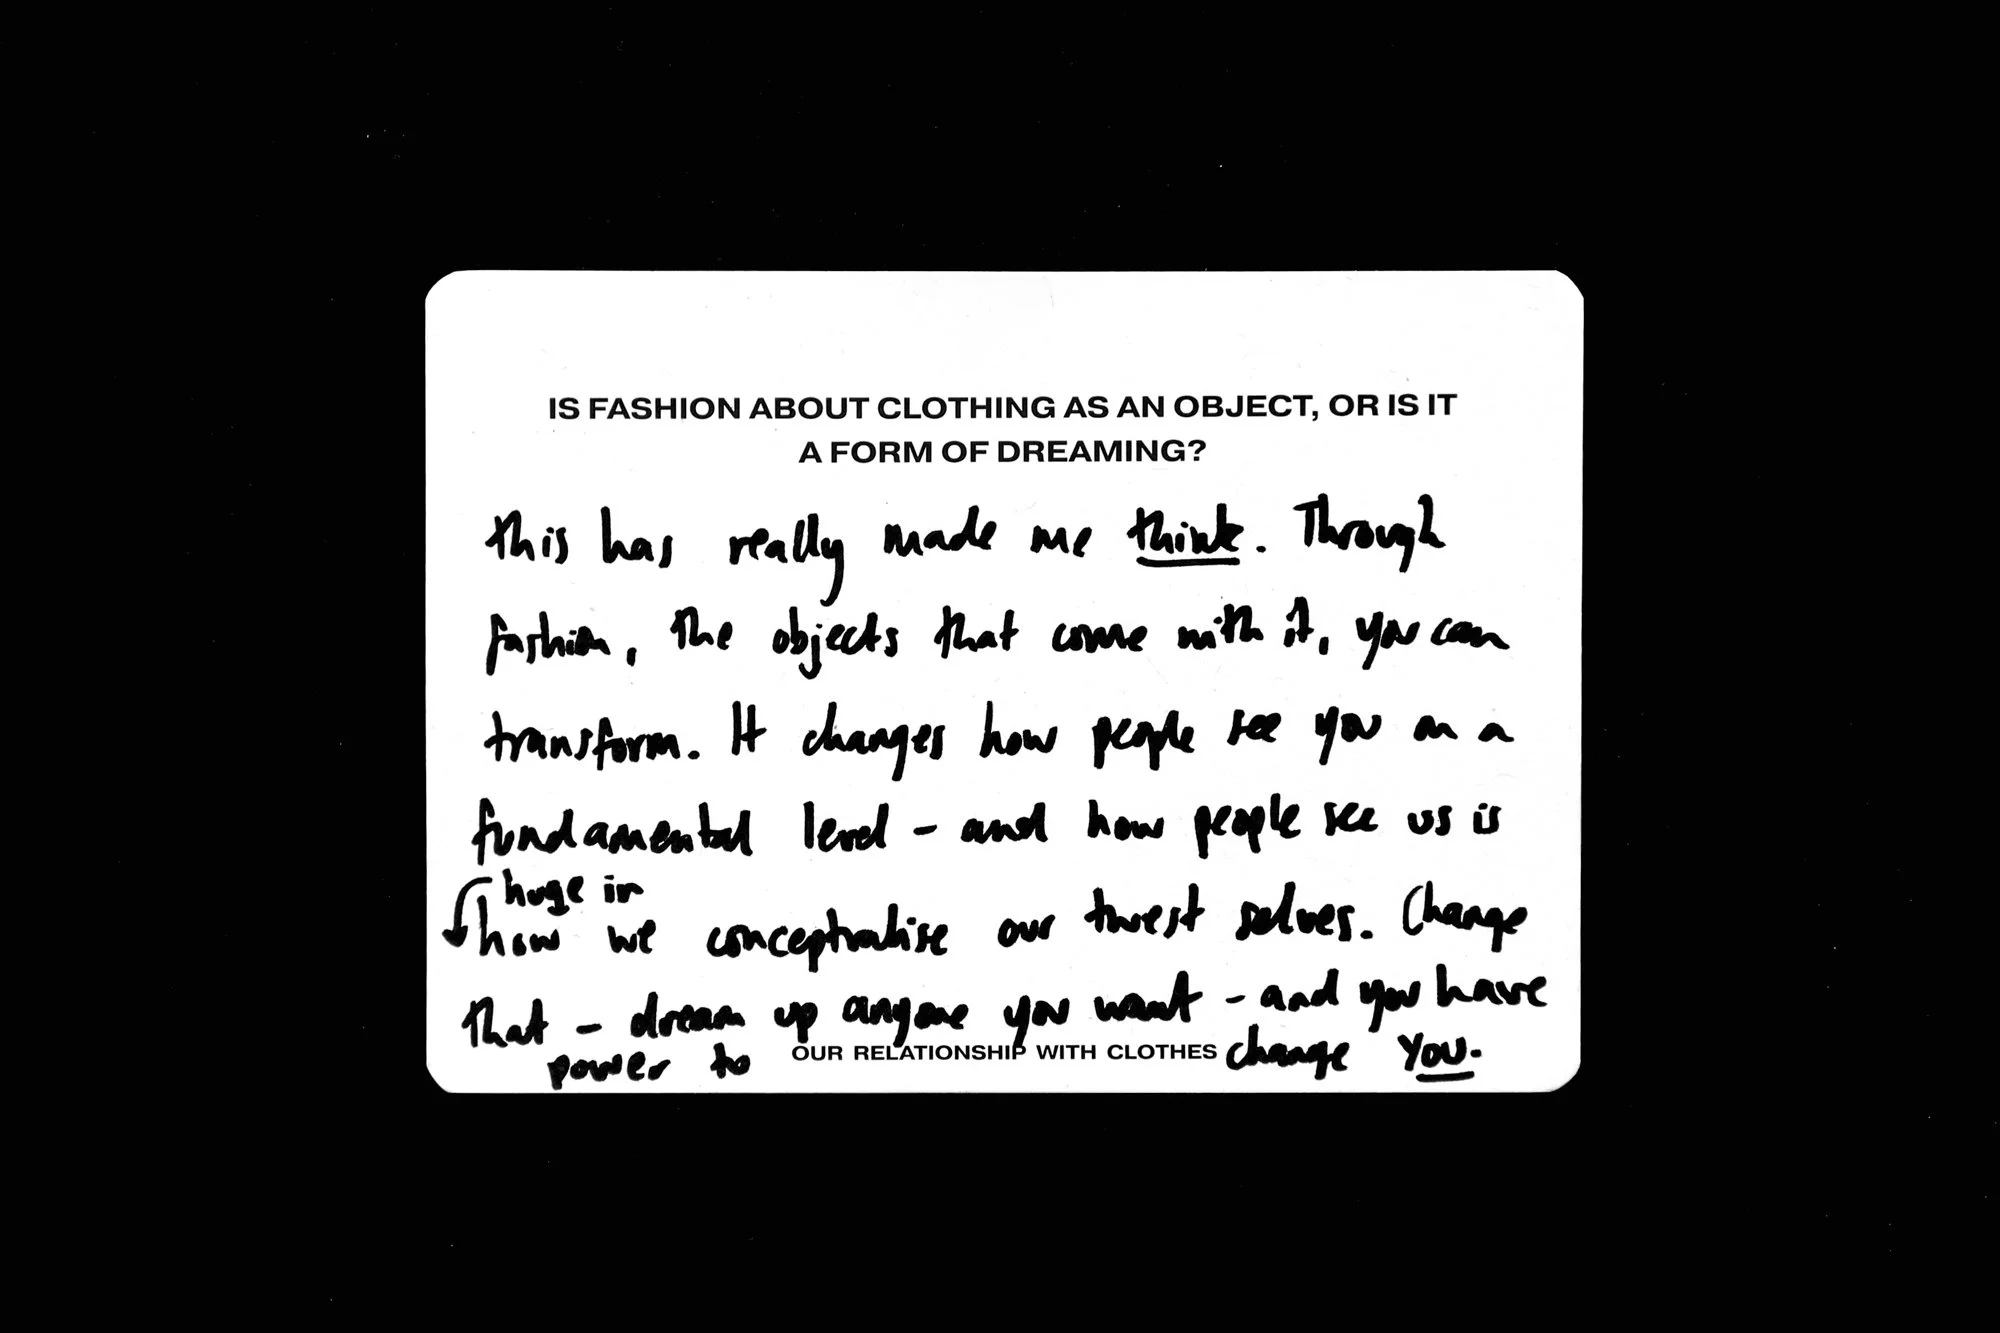 IS FASHION ABOUT CLOTHING AS AN OBJECT, OR IS IT
A FORM OF DREAMING?
this has really made me think. Through
fashion, the objects that come with it, you can
transform. It changes how people see you on a
fundamental level - and how people see us is
huge in
how we conceptualise our truest selves. Change
that - dream up anyone you want - and you have
power to change you.
OUR RELATIONSHIP WITH CLOTHES